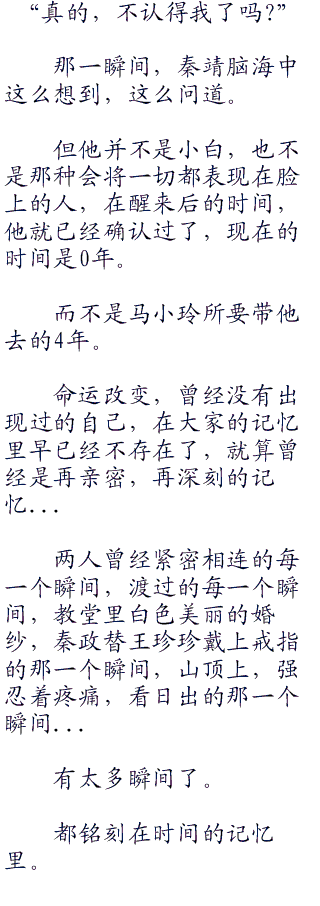 “真的，不认得我了吗?”
那一瞬间，秦靖脑海中
这么想到，这么问道。
但他并不是小白，也不
是那种会将一切都表现在脸
上的人，在醒来后的时间，
他就已经确认过了，现在的
时间是0年。
而不是马小玲所要带他
去的4年。
命运改变，曾经没有出
现过的自己，在大家的记忆
里早已经不存在了，就算曾
经是再亲密，再深刻的记
忆...
两人曾经紧密相连的每
一个瞬间，渡过的每一个瞬
间，教堂里白色美丽的婚
纱，秦政替王珍珍戴上戒指
的那一个瞬间，山顶上，强
忍着疼痛，看日出的那一个
瞬间...
有太多瞬间了。
都铭刻在时间的记忆
里。